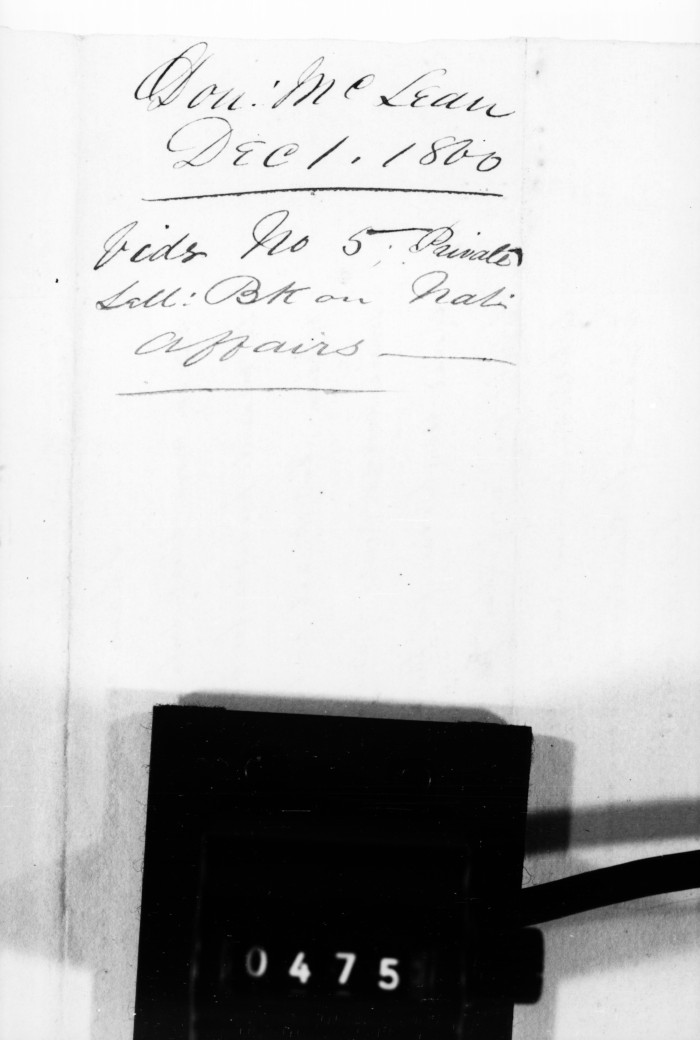 Don: Mc Lean
Dec 1. 1860
Vide No 5; Private
Lett: Bk on Nati:
affairs —
0475